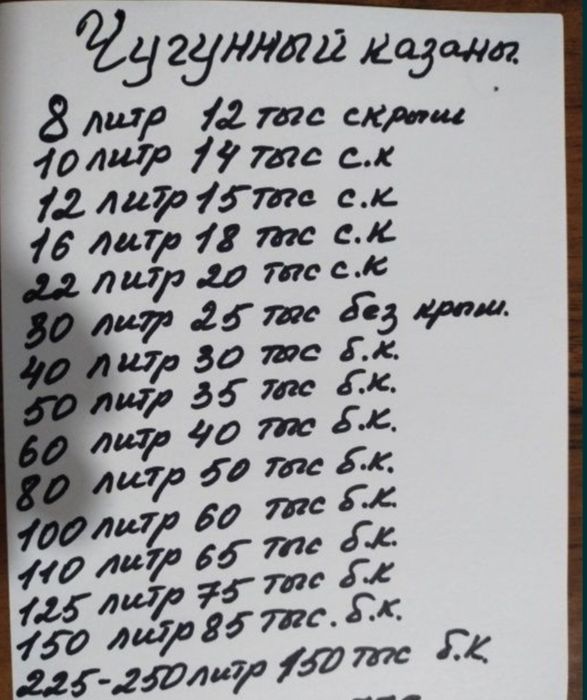 Чугунный казаны.
8 литр 12 тыс скрыш
10 литр 14 тыс с.к
12 литр 15 тыс с.к
16 литр 18 тыс с.к
22 литр 20 тыс с.к
30 литр 25 тыс без крыш.
40 литр 30 тыс б.к.
50 литр 35 тыс б.к.
60 литр 40 тыс б.к.
80 литр 50 тыс б.к.
100 литр 60 тыс б.к.
110 литр 65 тыс б.к.
125 литр 75 тыс б.к
150 литр 85 тыс. б.к.
225-250 литр 150 тыс б.к.